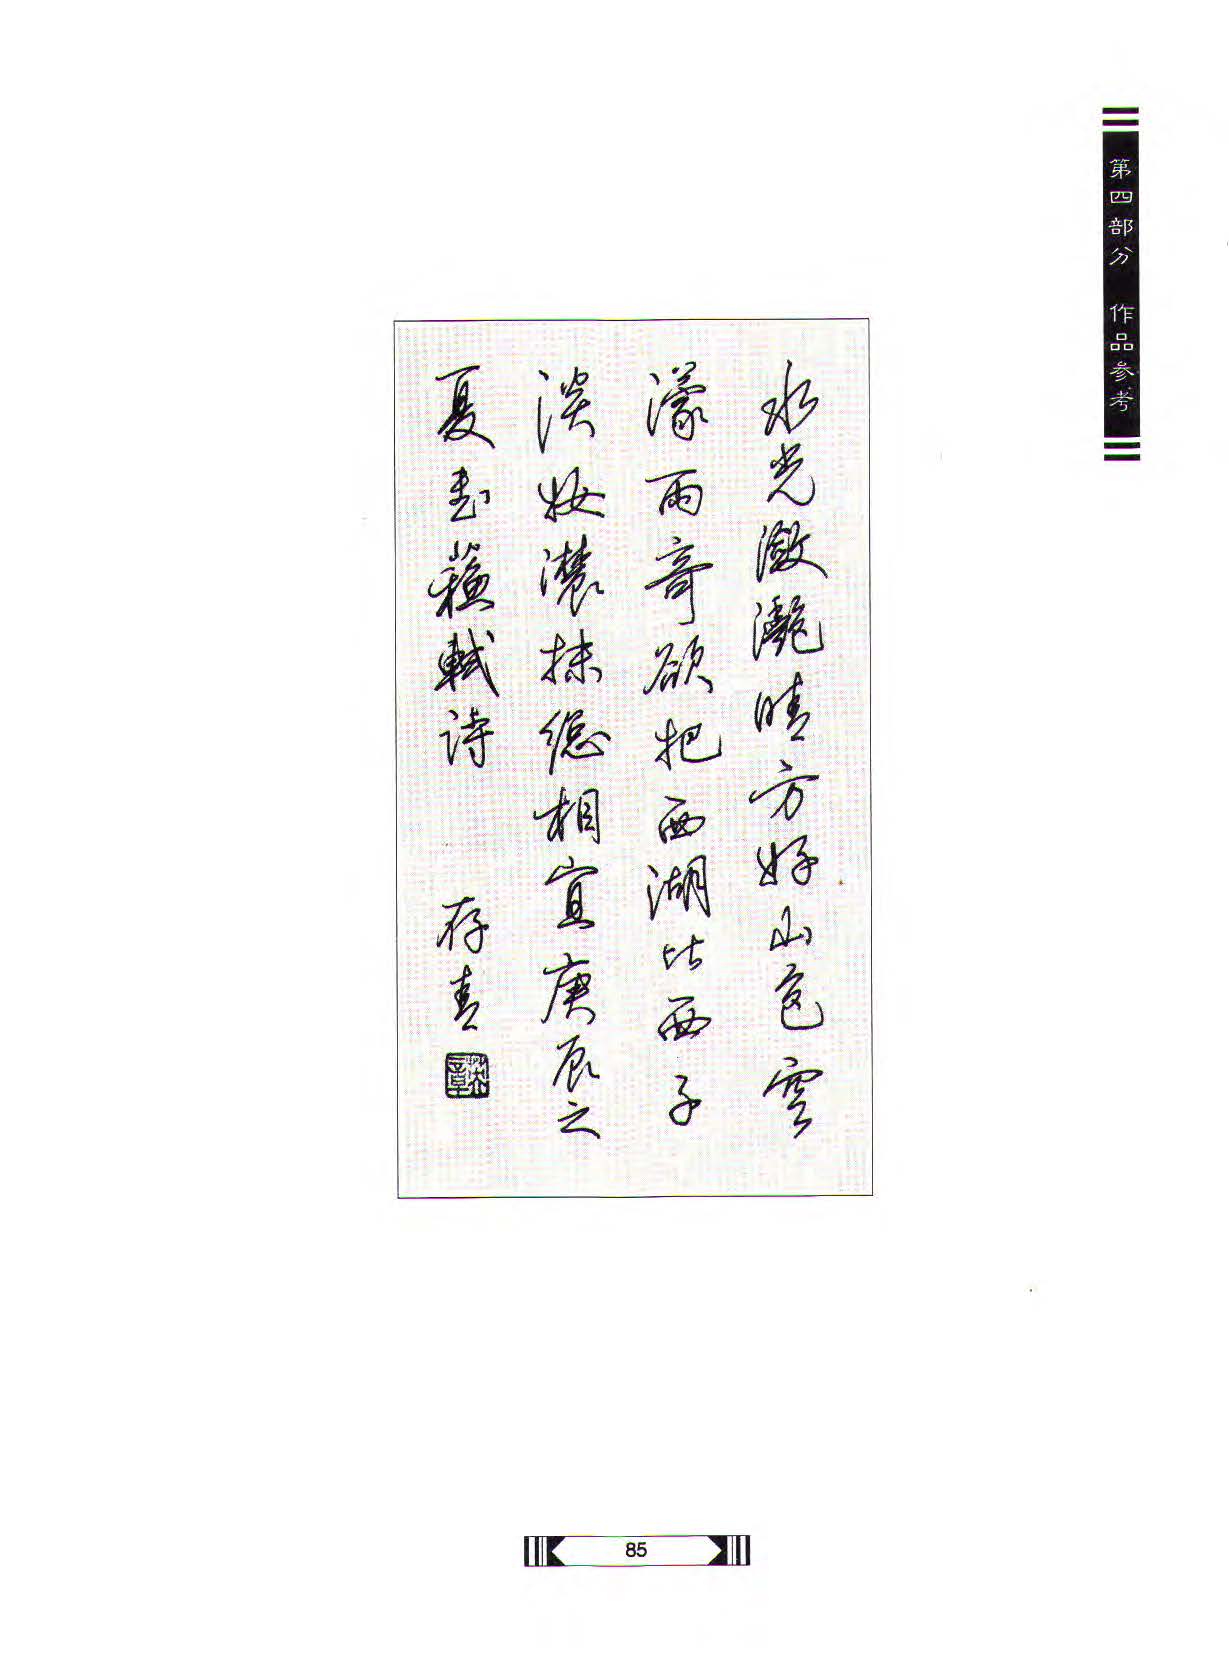 第四部分 作品参考
水光瀲灔晴方好山色空
濛雨奇欲把西湖比西子
淡妝濃抹總相宜庚辰之
夏书蘇軾诗 存青
85